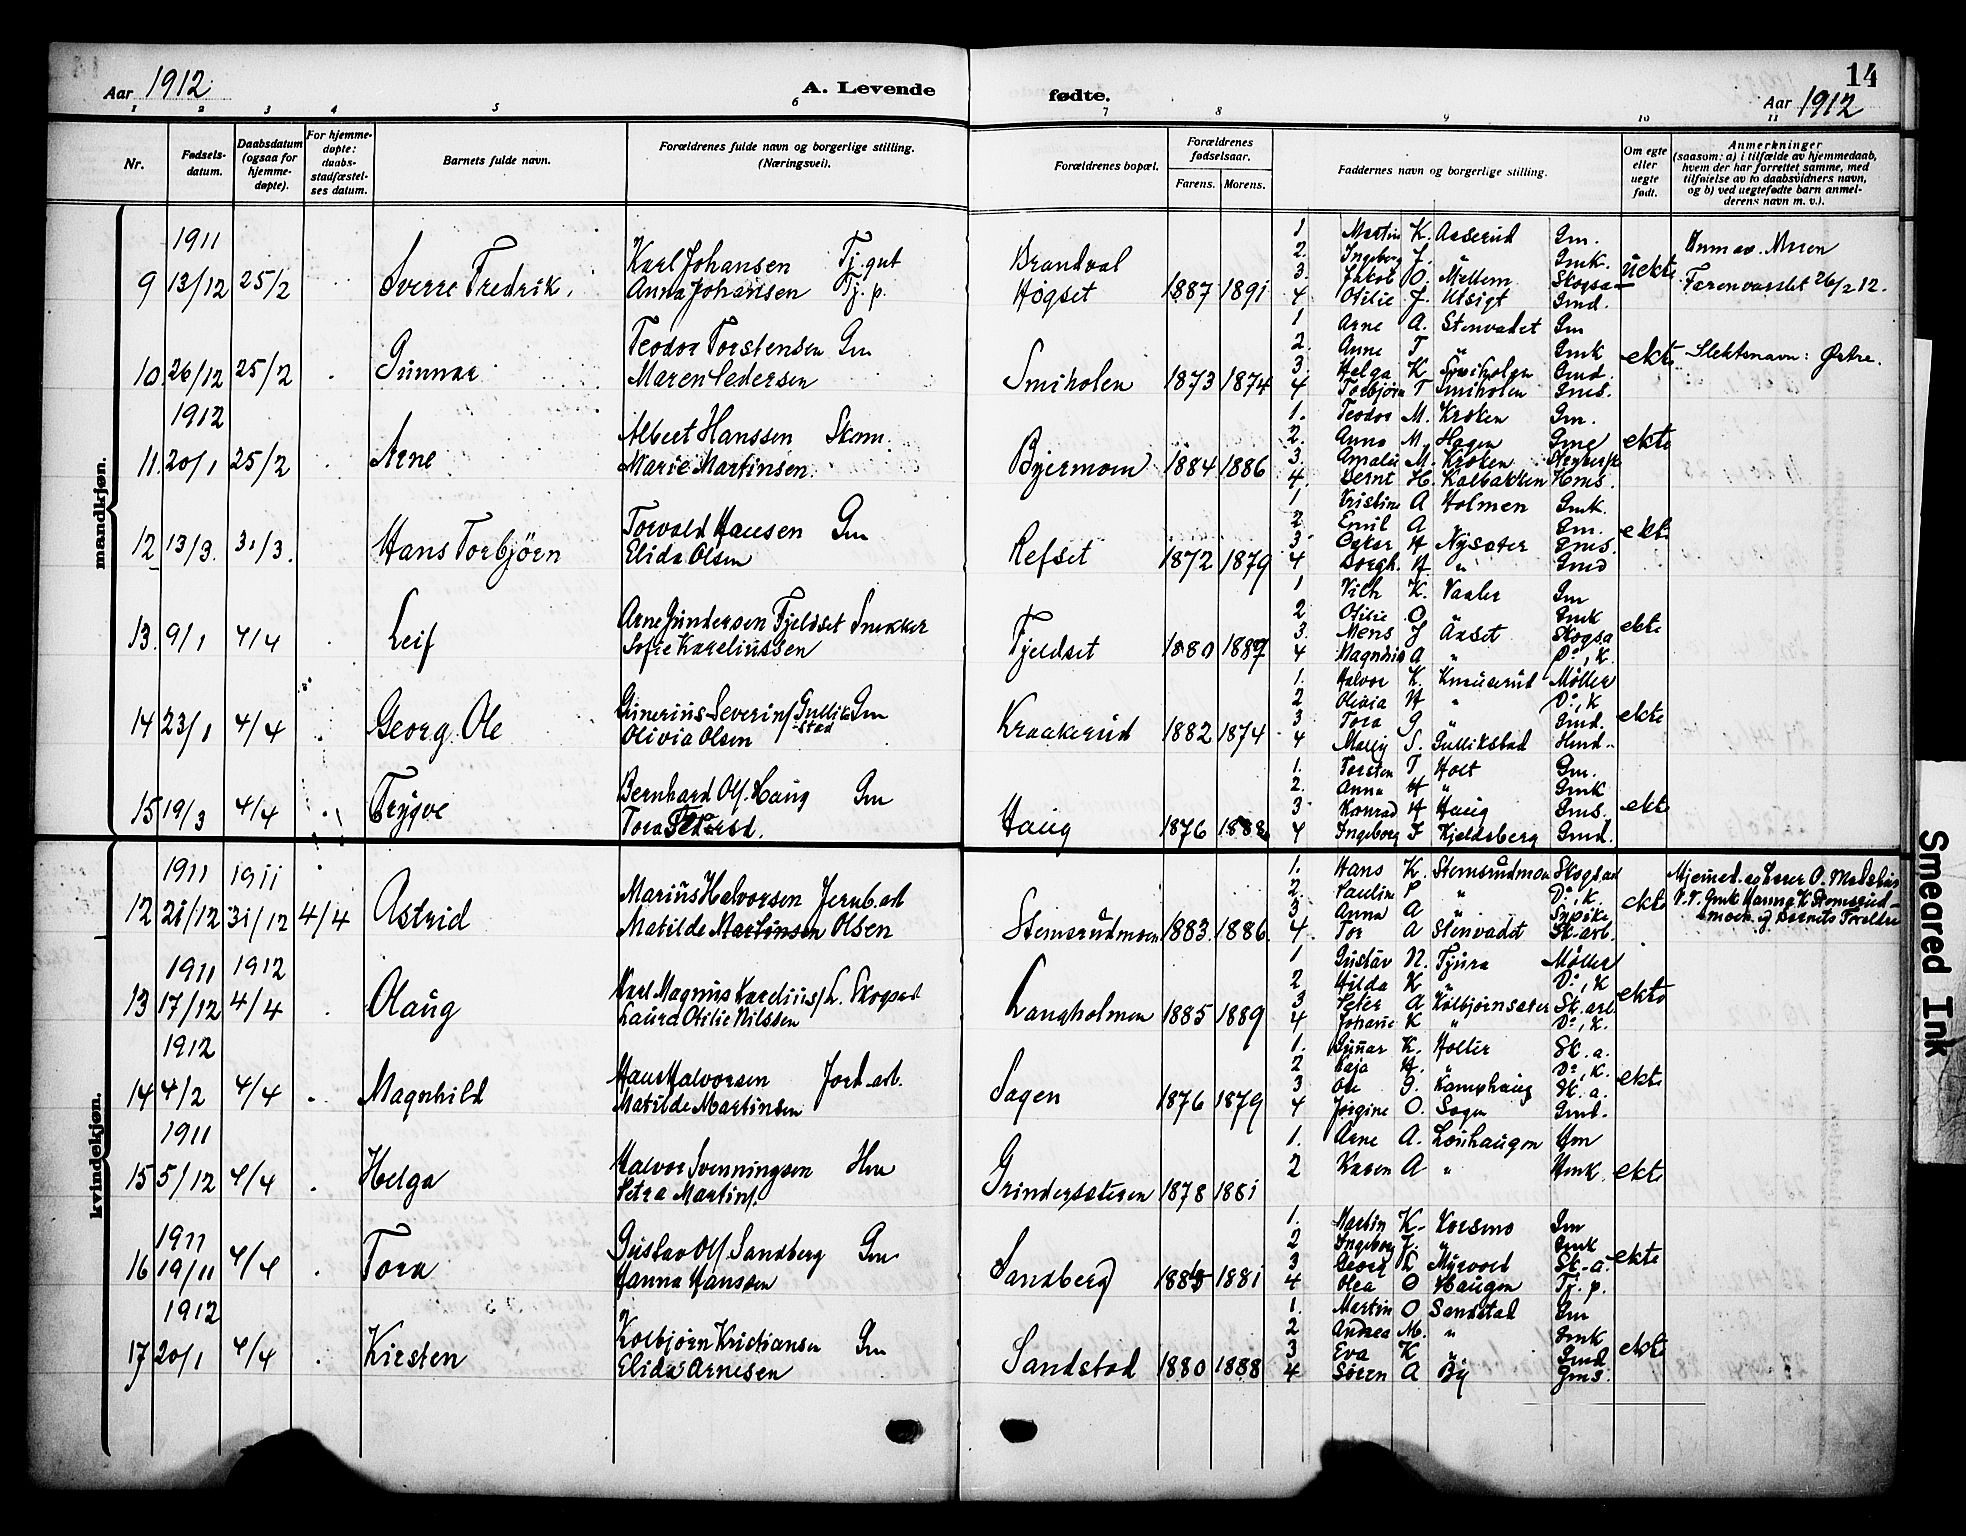 Aar 1912.
A. Levende
fødte.
14
Aar 1912
1 2 3 4 5 6 7 8 9 10 11
Nr.
Fødsels-
datum.
Daabsdatum
(ogsaa for
hjemme-
døpte).
For hjemme-
døpte:
daabs-
stadfæstel-
ses datum.
Barnets fulde navn.
Forældrenes fulde navn og borgerlige stilling.
(Næringsvei).
Forældrenes bopæl.
Forældrenes
fødselsaar.
Farens. Morens.
Faddernes navn og borgerlige stilling.
Om egte
eller
uegte
født.
Anmerkninger
(saasom: a) i tilfælde av hjemmedaab,
hvem der har forrettet samme, med
tilføielse av to daabsvidners navn,
og b) ved uegtefødte barn anmel-
derens navn m. v.).
mandkjøn.
1911
9 13/12 25/2 Sverre Fredrik.
Karl Johansen Tj. gut
Anna Johansen Tj. p.
Brandval
Høgset 1887 1891
1. Martin K. Aaserud Gm.
2. Ingeborg J. " Gmk.
3. Jakob O. Mellem Skogsa
4 Otilie J. Utsigt Gmd.
uekte
Anm av. Moren
Faren varslet 26/2 12.
10. 26/12 25/2 Gunnar
Teodor Torstensen Gm
Maren Pedersen
Smiholen 1873 1874
1 Arne A. Stenvadet Gm
2. Anne T " Gmk
3 Helga K Smiholen Gmd.
4 Torbjørn T Smiholen Gms.
ekte
Slektsnavn: Østre.
1912
11. 20/1 25/2 Arne
Albert Hanssen Skom.
Marie Martinsen.
Byermoen 1884 1886
1. Teodor M. Kroken Gm.
2. Anna M. Hagen Gme
3. Amalie M. Kroken
4. Bernt H. Kalbakken Hms.
ekte
12 13/3. 31/3. Hans Torbjørn
Torvald Hansen Gm
Elida Olsen
Refset 1872 1879
1 Kristine A Holmen Gmk.
2 Emil A Gm.
3 Oskar H Nysæter Gms.
4 Borgh. H " Gmd
ekte
13. 9/1 4/4 Leif
Arne Gundersen Fjeldset Snekker
Sofie Kareliussen
Fjeldset 1880 1889
1 Vilh K. Vaaler Gm
2 Otilie O. " Gmk
3. Mens J Aaset Skogsa
4 Magnhild A " Do, K.
ekte
14 23/1 4/4 Georg Ole
Gunerius Severins/ Gullik- Gm
stad
Olivia Olsen
Kraakerud 1882 1874
1. Halvor K. Knauserud Møller
2 Olivia H " Do, K
3 Tora G. " Gmd.
4 Mally S. Gullikstad Hmd.
ekte
15 19/3 4/4 Trygve
Bernhard Ols. Haug Gm
Tora
Haug 1876 1888
1. Torsten T Holt Gm.
2. Anna H " Gmk
3. Konrad H Haug Gms.
4 Ingeborg F Kjeldsberg Gmd.
ekte
kvindekjøn.
1911 1911
12 21/12 31/12 4/4 Astrid
Marius Halvorsen Jernb. arb
Matilde Martinsen Olsen
Stemsrudmoen 1883. 1886.
1. Hans K. Stemsrudmoen Skogsad
2. Pauline P " Do, K.
3. Anna A " Sypike
4. Tor A Stenvadet Sk. arb.
ekte
Hjemmed. av Lærer O.
F.F. Gmk Hanna K Stemsrud-
moen og Barnets Forældre
1911 1912
13 17/12 4/4 Olaug
Karl Magnus Karelius/ L. Skogsad
Laura Otilie Nilssen
Langholmen 1885 1889
1 Gustav N. Tjura Møller
2 Hilda K " Do, K
3 Peter A Kolbjørnsæter Sk. arb
4 Johane K " Do, K.
ekte
1912
14 4/2 4/4 Magnhild
Hans Halvorsen Jord. arb.
Matilde Martinsen
Sagen 1876 1879
1. Gunar K. Holter Sk. a.
2 Kaja H. " Do, K.
3 Ole G. Kamphaug Sk. a.
4 Jørgine O. Sagen Gmd.
ekte
1911
15 5/12 4/4 Helga
Halvor Svenningsen Hm
Petra Martins/.
Grindersæteren 1878 1881
1. Arne A. Louhaugen Hm
2 Karen A " Hmk.
ekte
1911
16 19/11 4/4 Tora
Gustav Ols. Sandberg Gm
Hanna Hanssen
Sandberg 1885 1881
1. Martin K. Korsmo Gm
2 Ingeborg J. " Gmk
3 Georg L Myrvold Sk. a.
4 Olea O Haugen Tj. p.
ekte
1912
17 20/1 4/4 Kirsten
Kolbjørn Kristiansen Gm
Elida Arnesen
Sandstad 1880 1888
1. Martin O Sandstad Gm
2 Andrea M. " Gmk
3 Eva K " Gmd
4 Søren A By Gms.
ekte
Smeared Ink